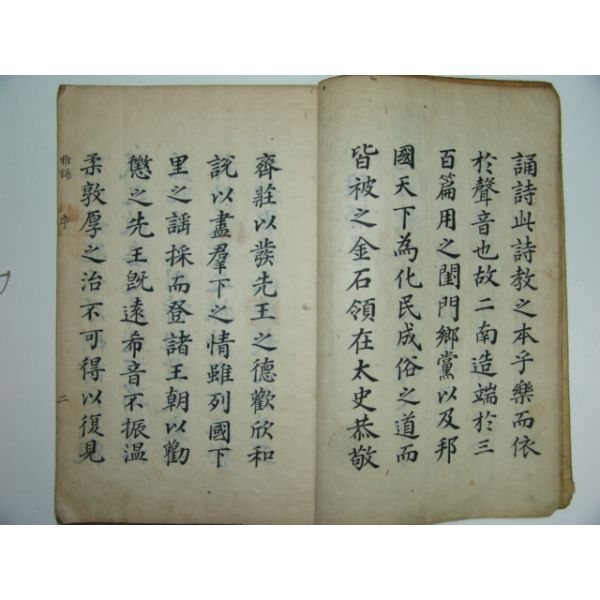 誦詩此詩教之本乎樂而依
於聲音也故二南造端於三
百篇用之閨門鄉黨以及邦
國天下為化民成俗之道而
皆被之金石領在太史恭敬
齊莊以發先王之德歡欣和
說以盡羣下之情雖列國下
里之謡採而登諸王朝以勸
懲之先王旣遠希音不振温
柔敦厚之治不可得以復見
雅誦 序 二